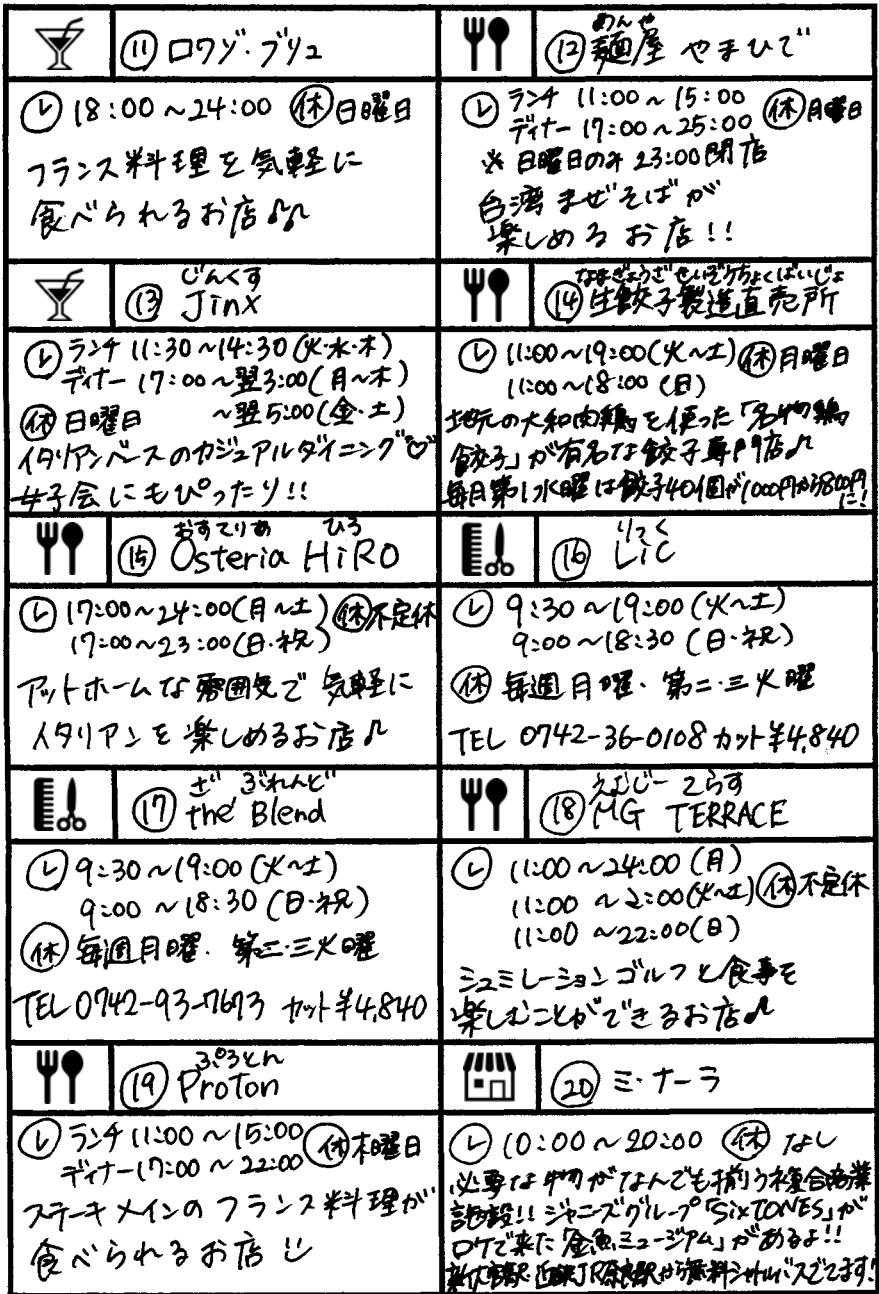 ⑪ ロワゾ・ブリュ
18:00～24:00 ㊡日曜日
フランス料理を気軽に
食べられるお店♪♪
めんや
⑫ 麺屋 やまひで
ランチ 11:00～15:00
ディナー 17:00～25:00 ㊡月曜日
※日曜日のみ 23:00閉店
台湾まぜそばが
楽しめるお店!!
じんくす
⑬ Jinx
ランチ 11:30～14:30(火・水・木)
ディナー 17:00～翌3:00(月～木)
㊡日曜日 ～翌5:00(金・土)
イタリアンベースのカジュアルダイニング♡
女子会にもぴったり!!
なまぎょうざ せいぞうちょくばいじょ
⑭ 生餃子製造直売所
11:00～19:00(火～土) ㊡月曜日
11:00～18:00 (日)
地元の大和肉鶏を使った「名物鶏
餃子」が有名な餃子専門店♪
毎月第1水曜は餃子40個が1000円から800円
に!
おすてりあ ひろ
⑮ Osteria HiRO
17:00～24:00(月～土) ㊡不定休
17:00～23:00(日・祝)
アットホームな雰囲気で 気軽に
イタリアンを楽しめるお店♪
りっく
⑯ LiC
9:30～19:00(火～土)
9:00～18:30 (日・祝)
㊡ 毎週月曜・第二・三火曜
TEL 0742-36-0108 カット¥4,840
ざ ぶれんど
⑰ the Blend
9:30～19:00(火～土)
9:00～18:30 (日・祝)
㊡ 毎週月曜・第二・三火曜
TEL 0742-93-7673 カット¥4,840
えむじー てらす
⑱ MG TERRACE
11:00～24:00 (月)
11:00 ～2:00(火～土) ㊡不定休
11:00 ～22:00(日)
シュミレーションゴルフと食事を
楽しむことができるお店♪
ぷろとん
⑲ ProTon
ランチ 11:00～15:00 ㊡木曜日
ディナー17:00～22:00
ステーキメインのフランス料理が
食べられるお店
⑳ ミ・ナーラ
10:00～20:00 ㊡ なし
必要な物がなんでも揃う複合商業
施設!! ジャニーズグループ「SixTONES」が
ロケで来た「金魚ミュージアム」があるよ!!
新大宮駅・近鉄JR奈良駅から無料シャトルバスでてます!